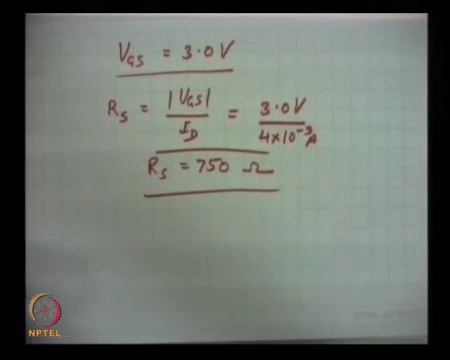 V_GS = 3.0V
R_S = |V_GS| / I_D = 3.0V / 4×10⁻³A
R_S = 750 Ω
NPTEL